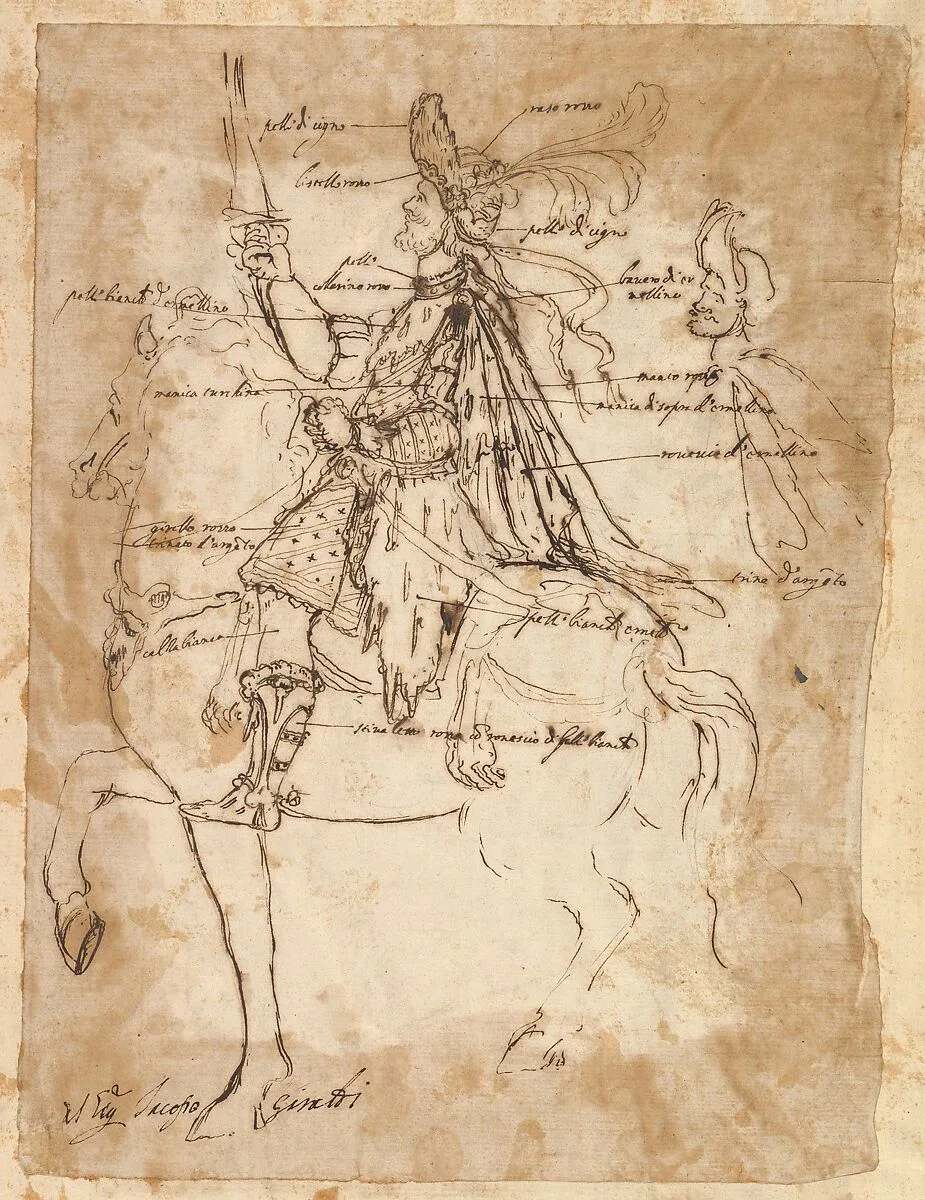 raso rosso
pelle di cigno
listello rosso
pelle di cigno
pelle
collarino rosso
bavero di er
mellino
pelle biancha d'ermellino
manto rosso
manica turchina
manica di sopra d'ermellino
rovescio d'ermellino
girello rosso
trinato d'argēto
trina d'argēto
pelle biancha ermell
calza bianca
stivaletto rosso cō rovescio di pelle biancha
Jacopo Giraldi